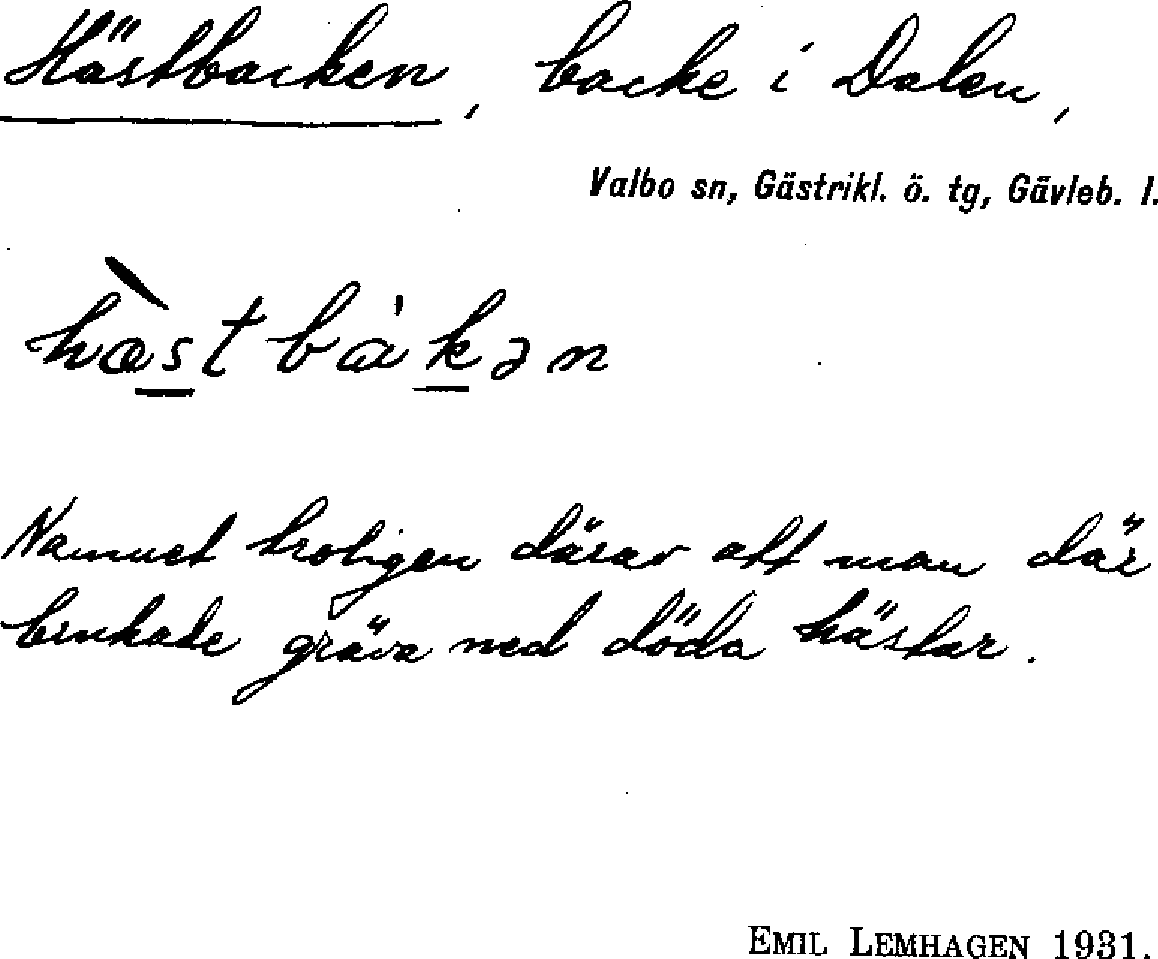 Hästbacken, backe i Dalen,
Valbo sn, Gästrikl. ö. tg, Gävleb. l.
hæ̀s̲tbàk̲ən
Namnet troligen därav att man där
brukade gräva ned döda hästar.
EMIL LEMHAGEN 1931.